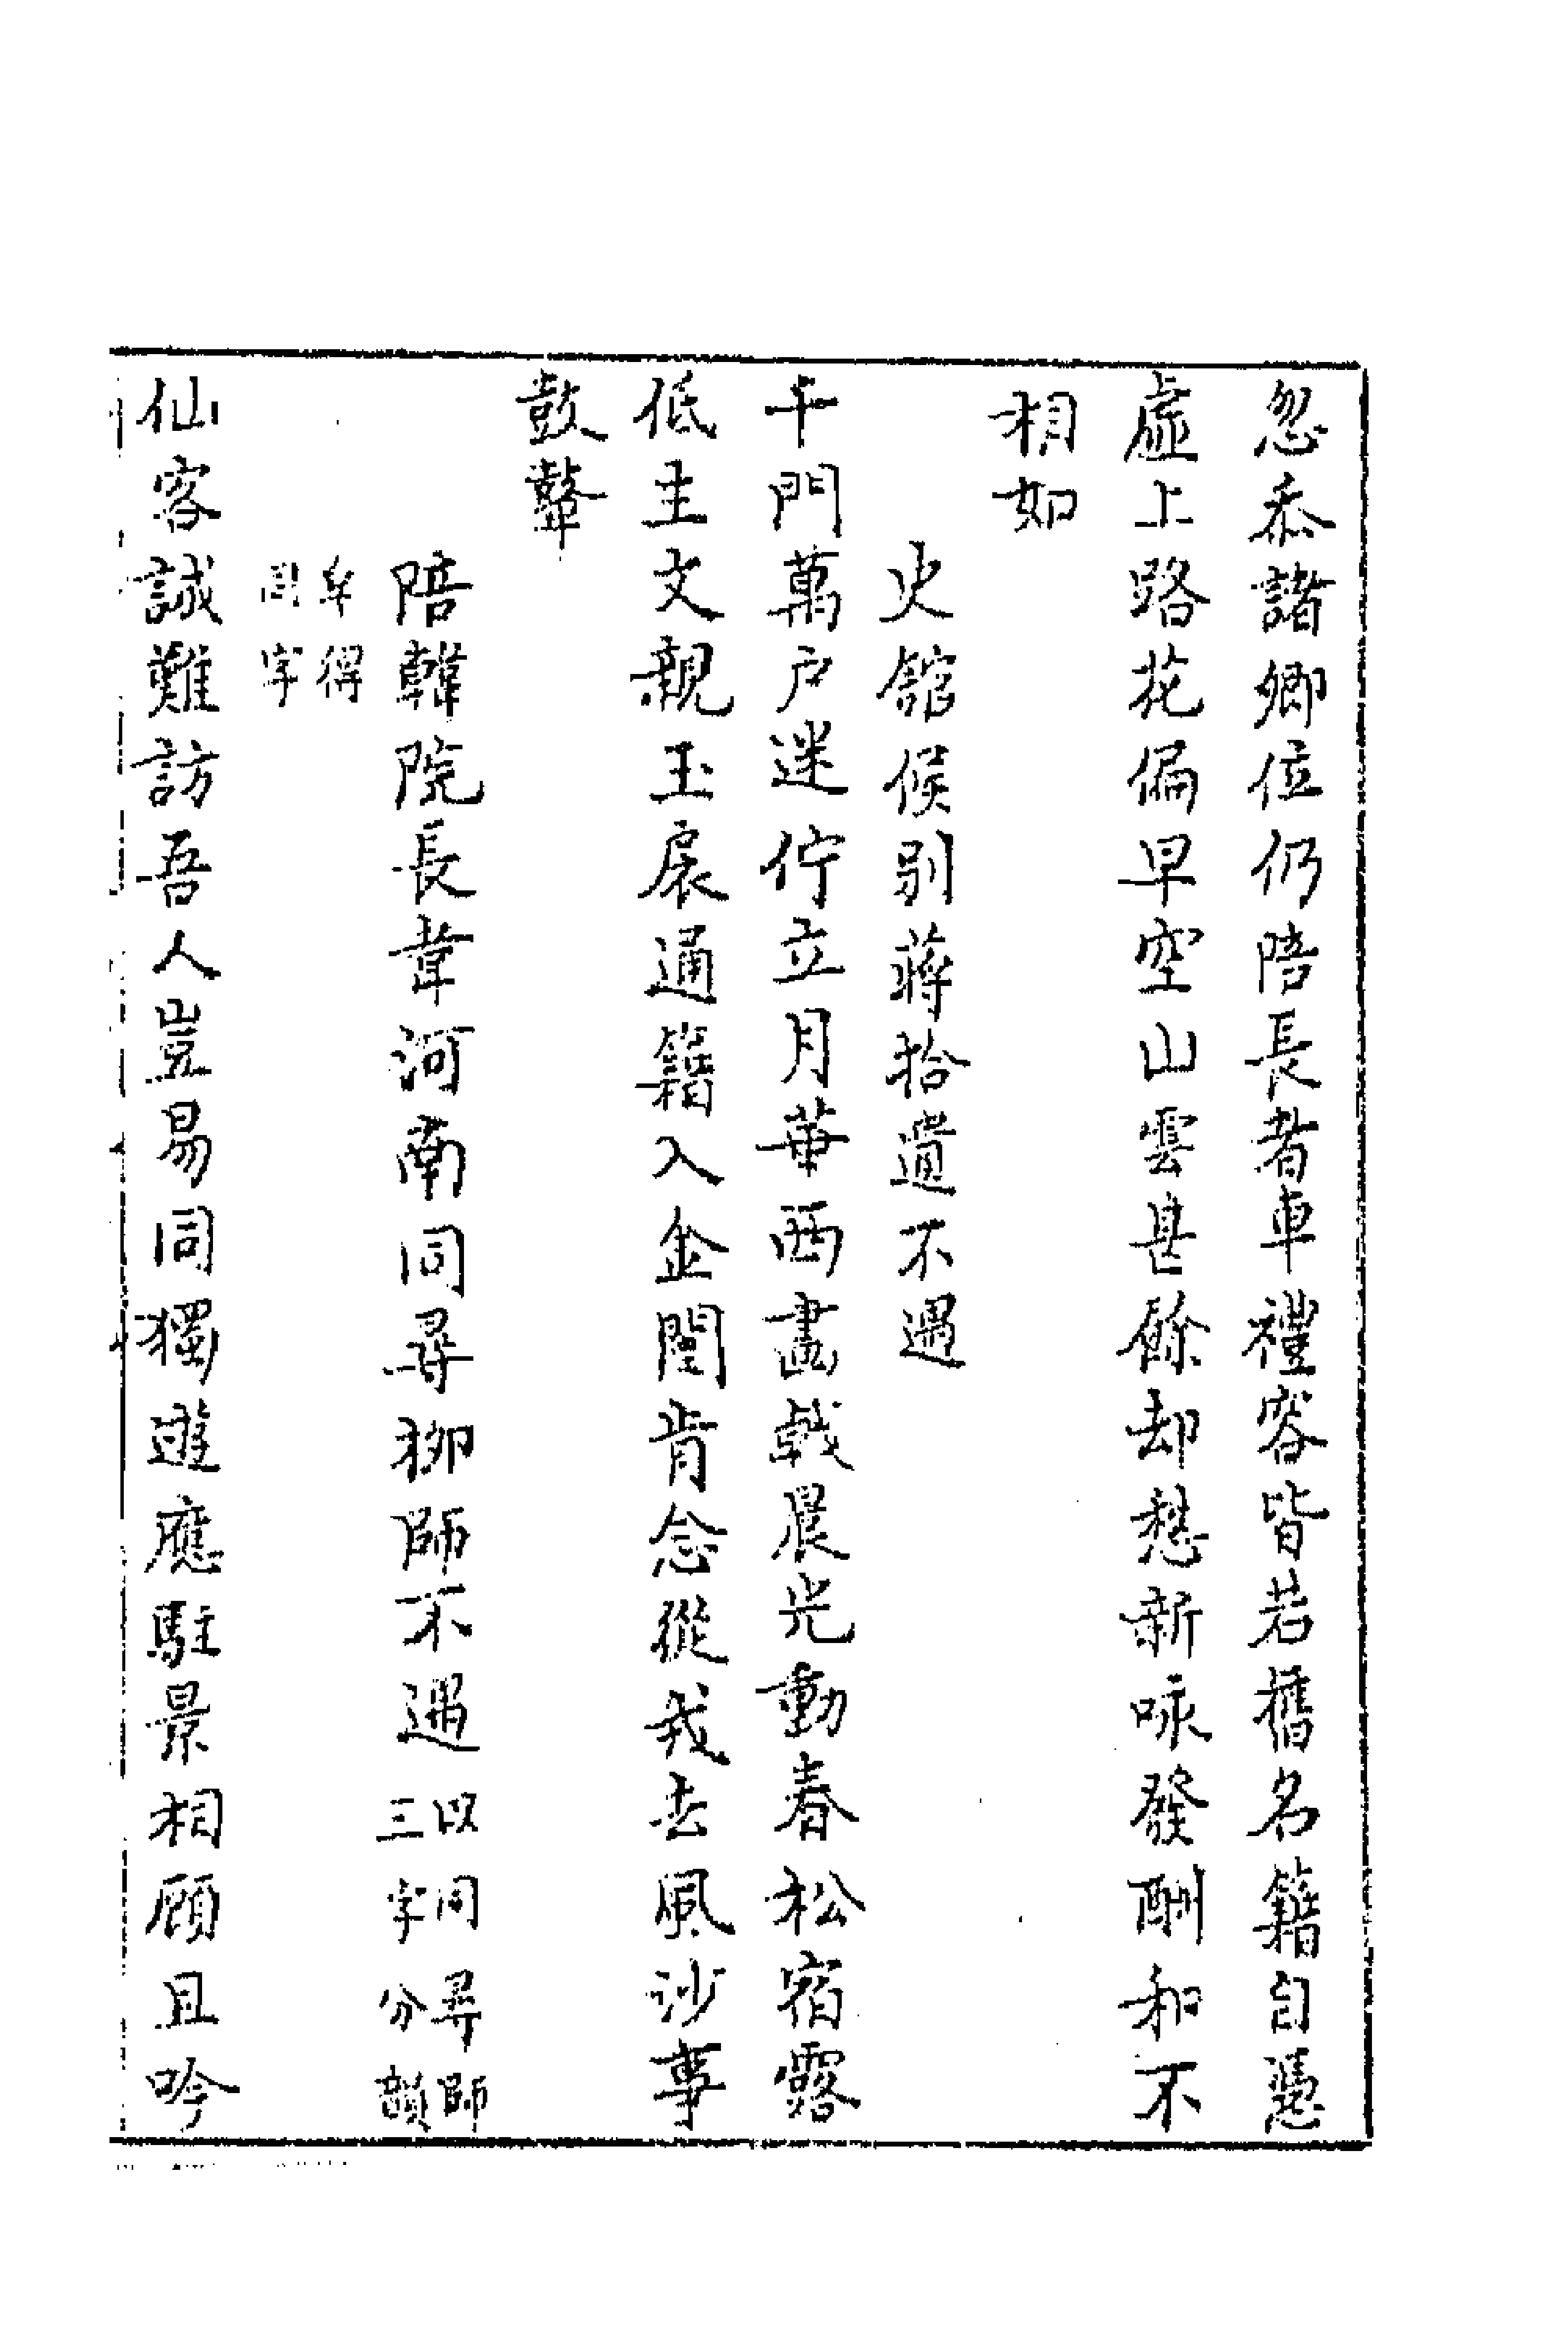 忽忝諸卿位仍陪長者車禮容皆若舊名籍自憑
虛上路花偏早空山雲甚餘却愁新咏發酬和不
相如
史館候別蔣拾遺不遇
千門萬户迷佇立月華西畫戟晨光動春松宿露
低主文親玉扆通籍入金閨肯念從我去風沙事
鼓鼙
陪韓院長韋河南同尋柳師不遇以同尋師三字分韻
牟得同字
仙客誠難訪吾人豈易同獨遊應駐景相顧且吟